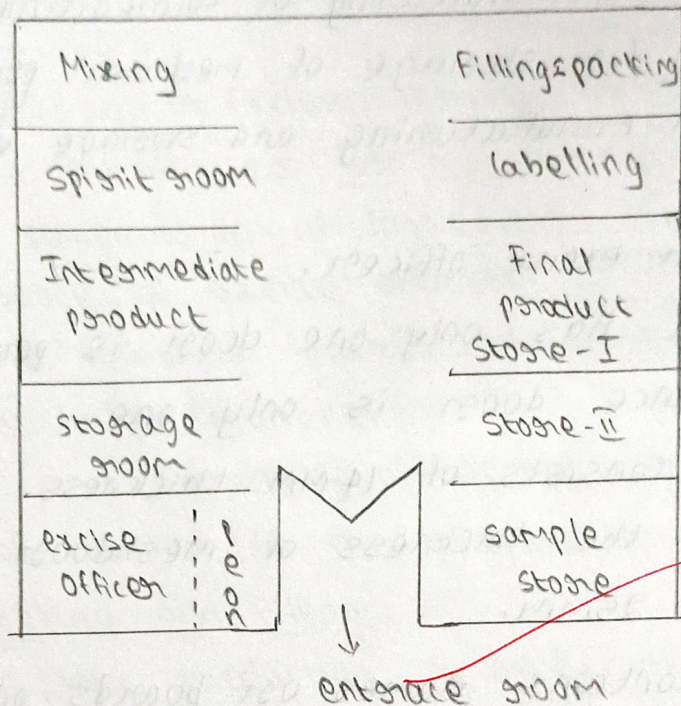 Mixing
Spirit room
Intermediate
product
storage
room
excise
officer
Peon
Filling & packing
labelling
Final
product
store-I
store-II
sample
store
entrace room